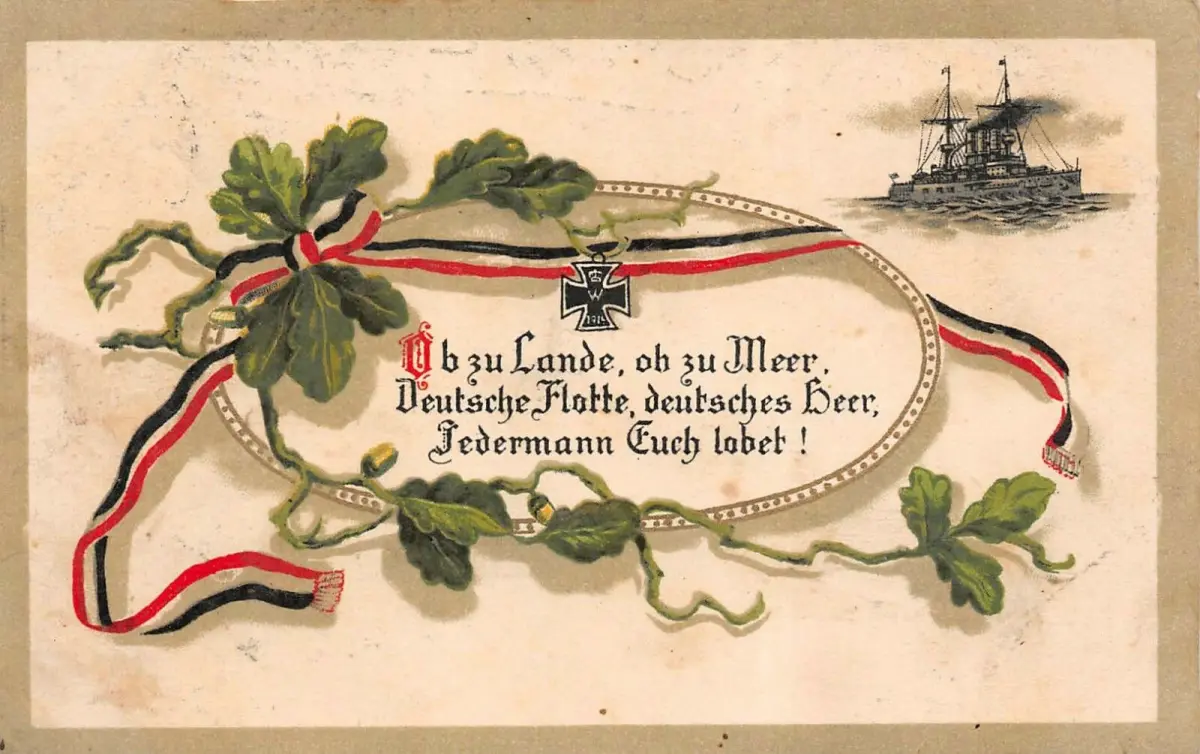 W
1914
Ob zu Lande, ob zu Meer,
Deutsche Flotte, deutsches Heer,
Jedermann Euch lobet!